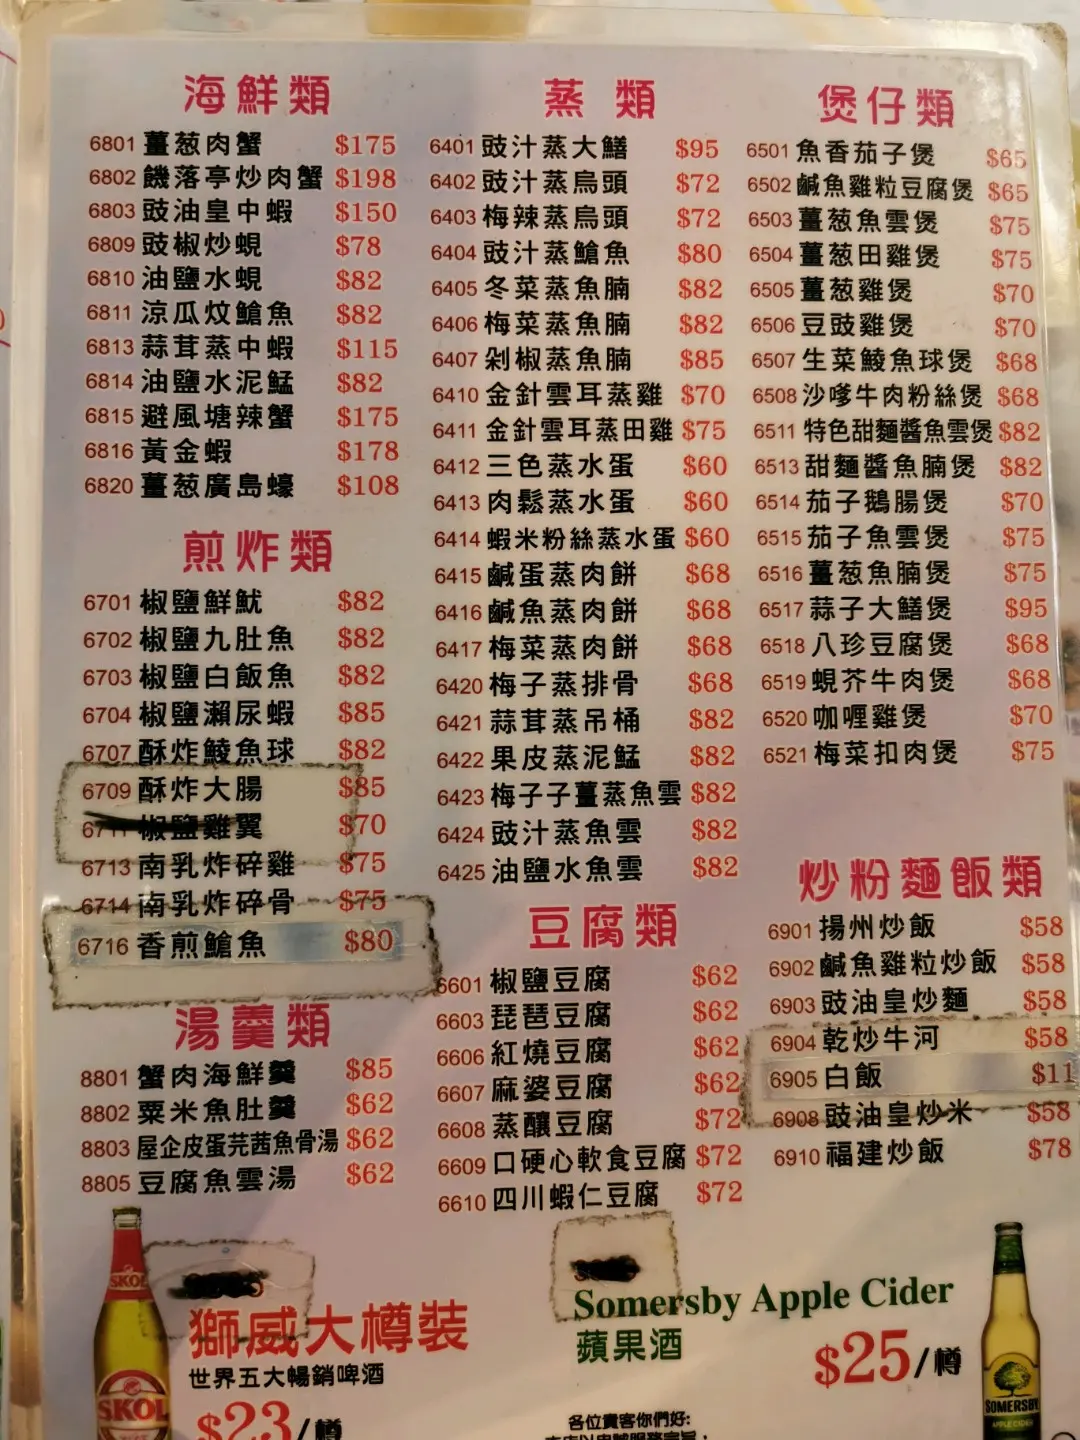 海鮮類
6801 薑葱肉蟹 $175
6802 饑落亭炒肉蟹 $198
6803 豉油皇中蝦 $150
6809 豉椒炒蜆 $78
6810 油鹽水蜆 $82
6811 涼瓜炆鱠魚 $82
6813 蒜茸蒸中蝦 $115
6814 油鹽水泥鯭 $82
6815 避風塘辣蟹 $175
6816 黃金蝦 $178
6820 薑葱廣島蠔 $108
煎炸類
6701 椒鹽鮮魷 $82
6702 椒鹽九肚魚 $82
6703 椒鹽白飯魚 $82
6704 椒鹽瀨尿蝦 $85
6707 酥炸鯪魚球 $82
6709 酥炸大腸 $85
6711 椒鹽雞翼 $70
6713 南乳炸碎雞 $75
6714 南乳炸碎骨 $75
6716 香煎鱠魚 $80
湯羹類
8801 蟹肉海鮮羹 $85
8802 粟米魚肚羹 $62
8803 屋企皮蛋芫茜魚骨湯 $62
8805 豆腐魚雲湯 $62
蒸類
6401 豉汁蒸大鱔 $95
6402 豉汁蒸烏頭 $72
6403 梅辣蒸烏頭 $72
6404 豉汁蒸鱠魚 $80
6405 冬菜蒸魚腩 $82
6406 梅菜蒸魚腩 $82
6407 剁椒蒸魚腩 $85
6410 金針雲耳蒸雞 $70
6411 金針雲耳蒸田雞 $75
6412 三色蒸水蛋 $60
6413 肉鬆蒸水蛋 $60
6414 蝦米粉絲蒸水蛋 $60
6415 鹹蛋蒸肉餅 $68
6416 鹹魚蒸肉餅 $68
6417 梅菜蒸肉餅 $68
6420 梅子蒸排骨 $68
6421 蒜茸蒸吊桶 $82
6422 果皮蒸泥鯭 $82
6423 梅子子薑蒸魚雲 $82
6424 豉汁蒸魚雲 $82
6425 油鹽水魚雲 $82
豆腐類
6601 椒鹽豆腐 $62
6603 琵琶豆腐 $62
6606 紅燒豆腐 $62
6607 麻婆豆腐 $62
6608 蒸釀豆腐 $72
6609 口硬心軟食豆腐 $72
6610 四川蝦仁豆腐 $72
煲仔類
6501 魚香茄子煲 $65
6502 鹹魚雞粒豆腐煲 $65
6503 薑葱魚雲煲 $75
6504 薑葱田雞煲 $75
6505 薑葱雞煲 $70
6506 豆豉雞煲 $70
6507 生菜鯪魚球煲 $68
6508 沙嗲牛肉粉絲煲 $68
6511 特色甜麵醬魚雲煲 $82
6513 甜麵醬魚腩煲 $82
6514 茄子鵝腸煲 $70
6515 茄子魚雲煲 $75
6516 薑葱魚腩煲 $75
6517 蒜子大鱔煲 $95
6518 八珍豆腐煲 $68
6519 蜆芥牛肉煲 $68
6520 咖喱雞煲 $70
6521 梅菜扣肉煲 $75
炒粉麵飯類
6901 揚州炒飯 $58
6902 鹹魚雞粒炒飯 $58
6903 豉油皇炒麵 $58
6904 乾炒牛河 $58
6905 白飯 $11
6908 豉油皇炒米 $58
6910 福建炒飯 $78
SKOL
SKOL
獅威大樽裝
世界五大暢銷啤酒
$23/樽
Somersby Apple Cider
蘋果酒
$25/樽
SOMERSBY
APPLE CIDER
各位貴客你們好: